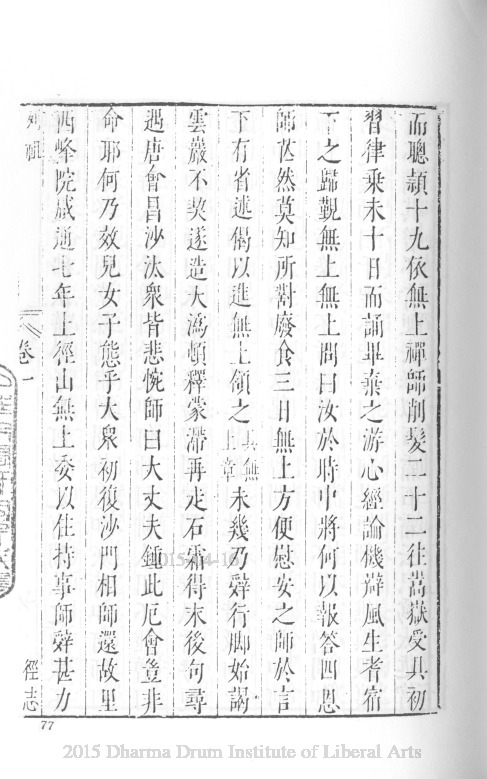 而聰頴十九依無上禪師削髮二十二往嵩嶽受具初
習律乗未十日而誦畢棄之游心經論機辯風生耆宿
下之歸覲無上無上問曰汝於時中將何以報答四恩
師茫然莫知所對廢食三日無上方便慰安之師於言
下有省述偈以進無上頷之具無上章未幾乃辤行脚始謁
雲巖不契遂造大溈頓釋蒙滯再走石霜得末後句尋
遇唐會昌沙汰衆皆悲惋師曰大丈夫鍾此厄會豈非
命耶何乃效兒女子態乎大衆初復沙門相師還故里
西峰院咸通七年上徑山無上委以住持事師辤甚力
列祖
卷一
徑志
77
2015 Dharma Drum Institute of Liberal Arts